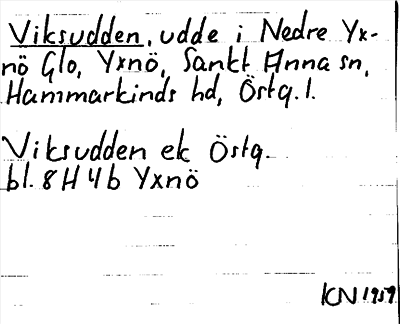 Viksudden, udde i Nedre Yx-
nö Glo, Yxnö, Sankt Anna sn,
Hammarkinds hd, Östg. l.
Viksudden ek Östg.
bl. 8H4b Yxnö
KN 1959